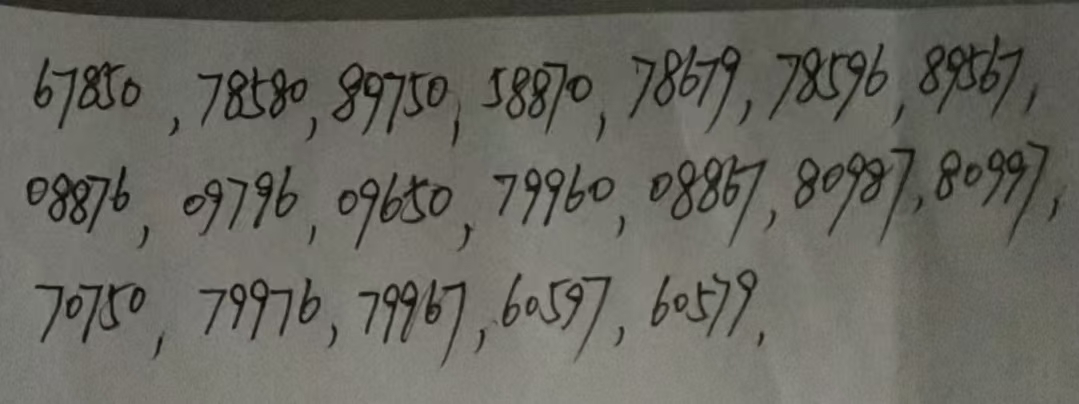 67850, 78580, 89750, 58870, 78679, 78596, 89567,
08876, 09796, 09650, 79960, 08867, 80987, 80997,
70750, 79976, 79967, 60597, 60579,